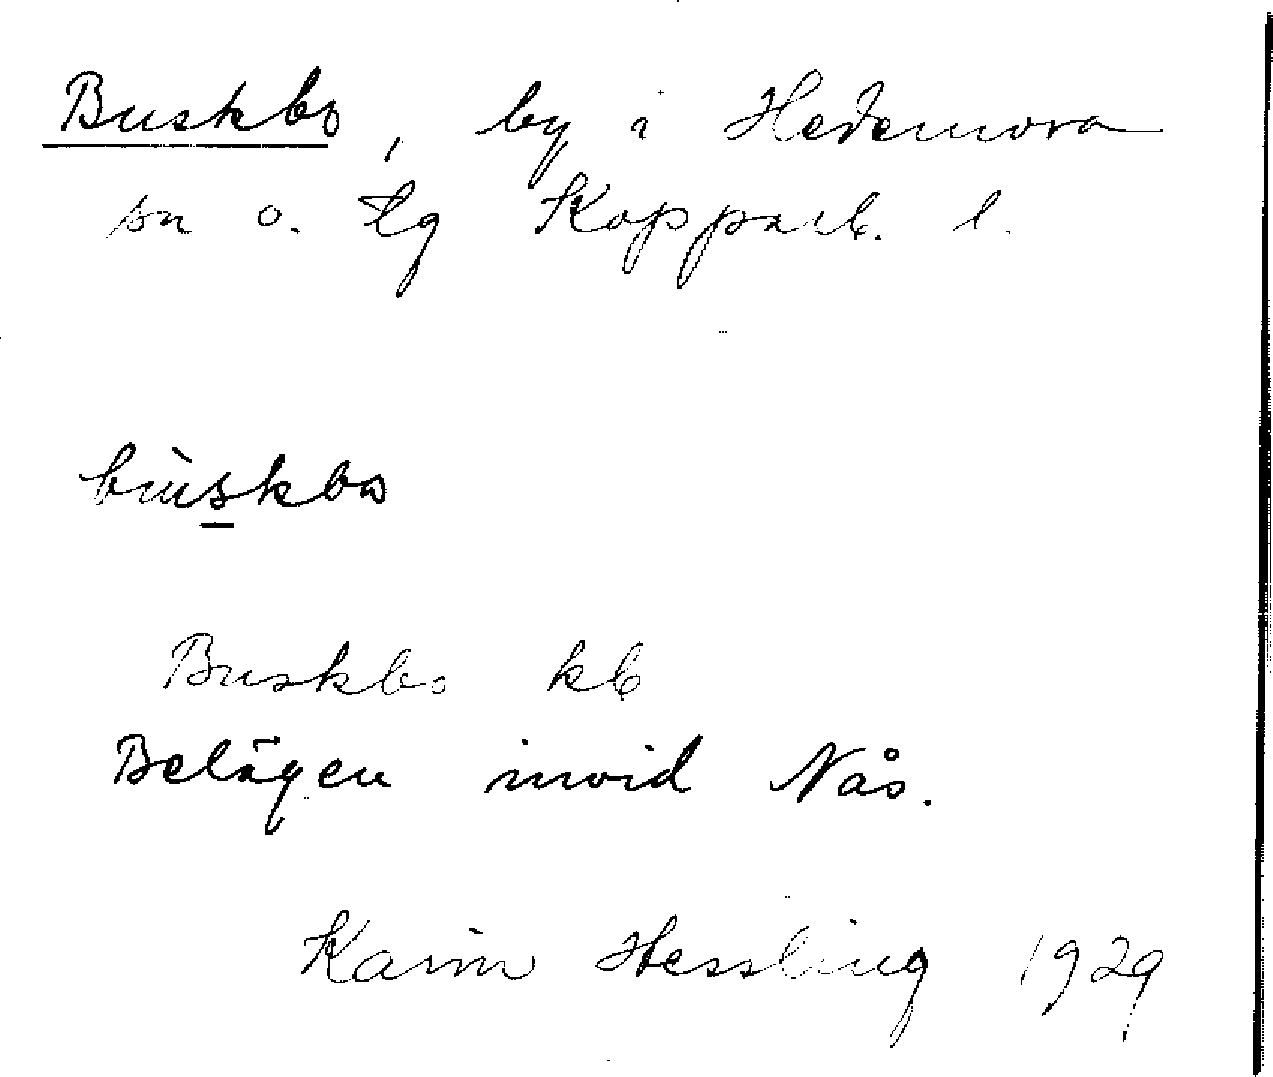 Buskbo, by i Hedemora
sn o. tg Kopparb. l.
bùskbo
Buskbo kb
Belägen invid Nås.
Karin Hessling 1929